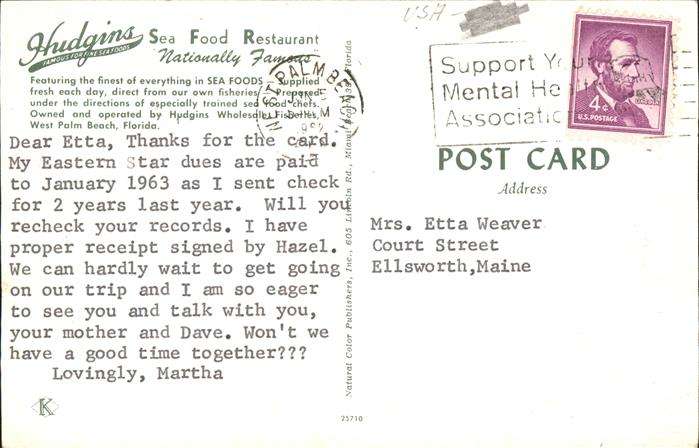 Hudgins Sea Food Restaurant
FAMOUS FOR FINE SEA FOODS
"Nationally Famous"
Featuring the finest of everything in SEA FOODS — Supplied
fresh each day, direct from our own fisheries. Prepared
under the directions of especially trained sea food chefs.
Owned and operated by Hudgins Wholesale Fisheries,
West Palm Beach, Florida.
Dear Etta, Thanks for the card.
My Eastern Star dues are paid
to January 1963 as I sent check
for 2 years last year. Will you
recheck your records. I have
proper receipt signed by Hazel.
We can hardly wait to get going
on our trip and I am so eager
to see you and talk with you,
your mother and Dave. Won't we
have a good time together???
Lovingly, Martha
K
Natural Color Publishers, Inc., 605 Lincoln Rd., Miami Florida
25710
USA
WEST PALM BEACH
Support Your
Mental Health
Association
4¢
LINCOLN
U.S. POSTAGE
POST CARD
Address
Mrs. Etta Weaver
Court Street
Ellsworth,Maine